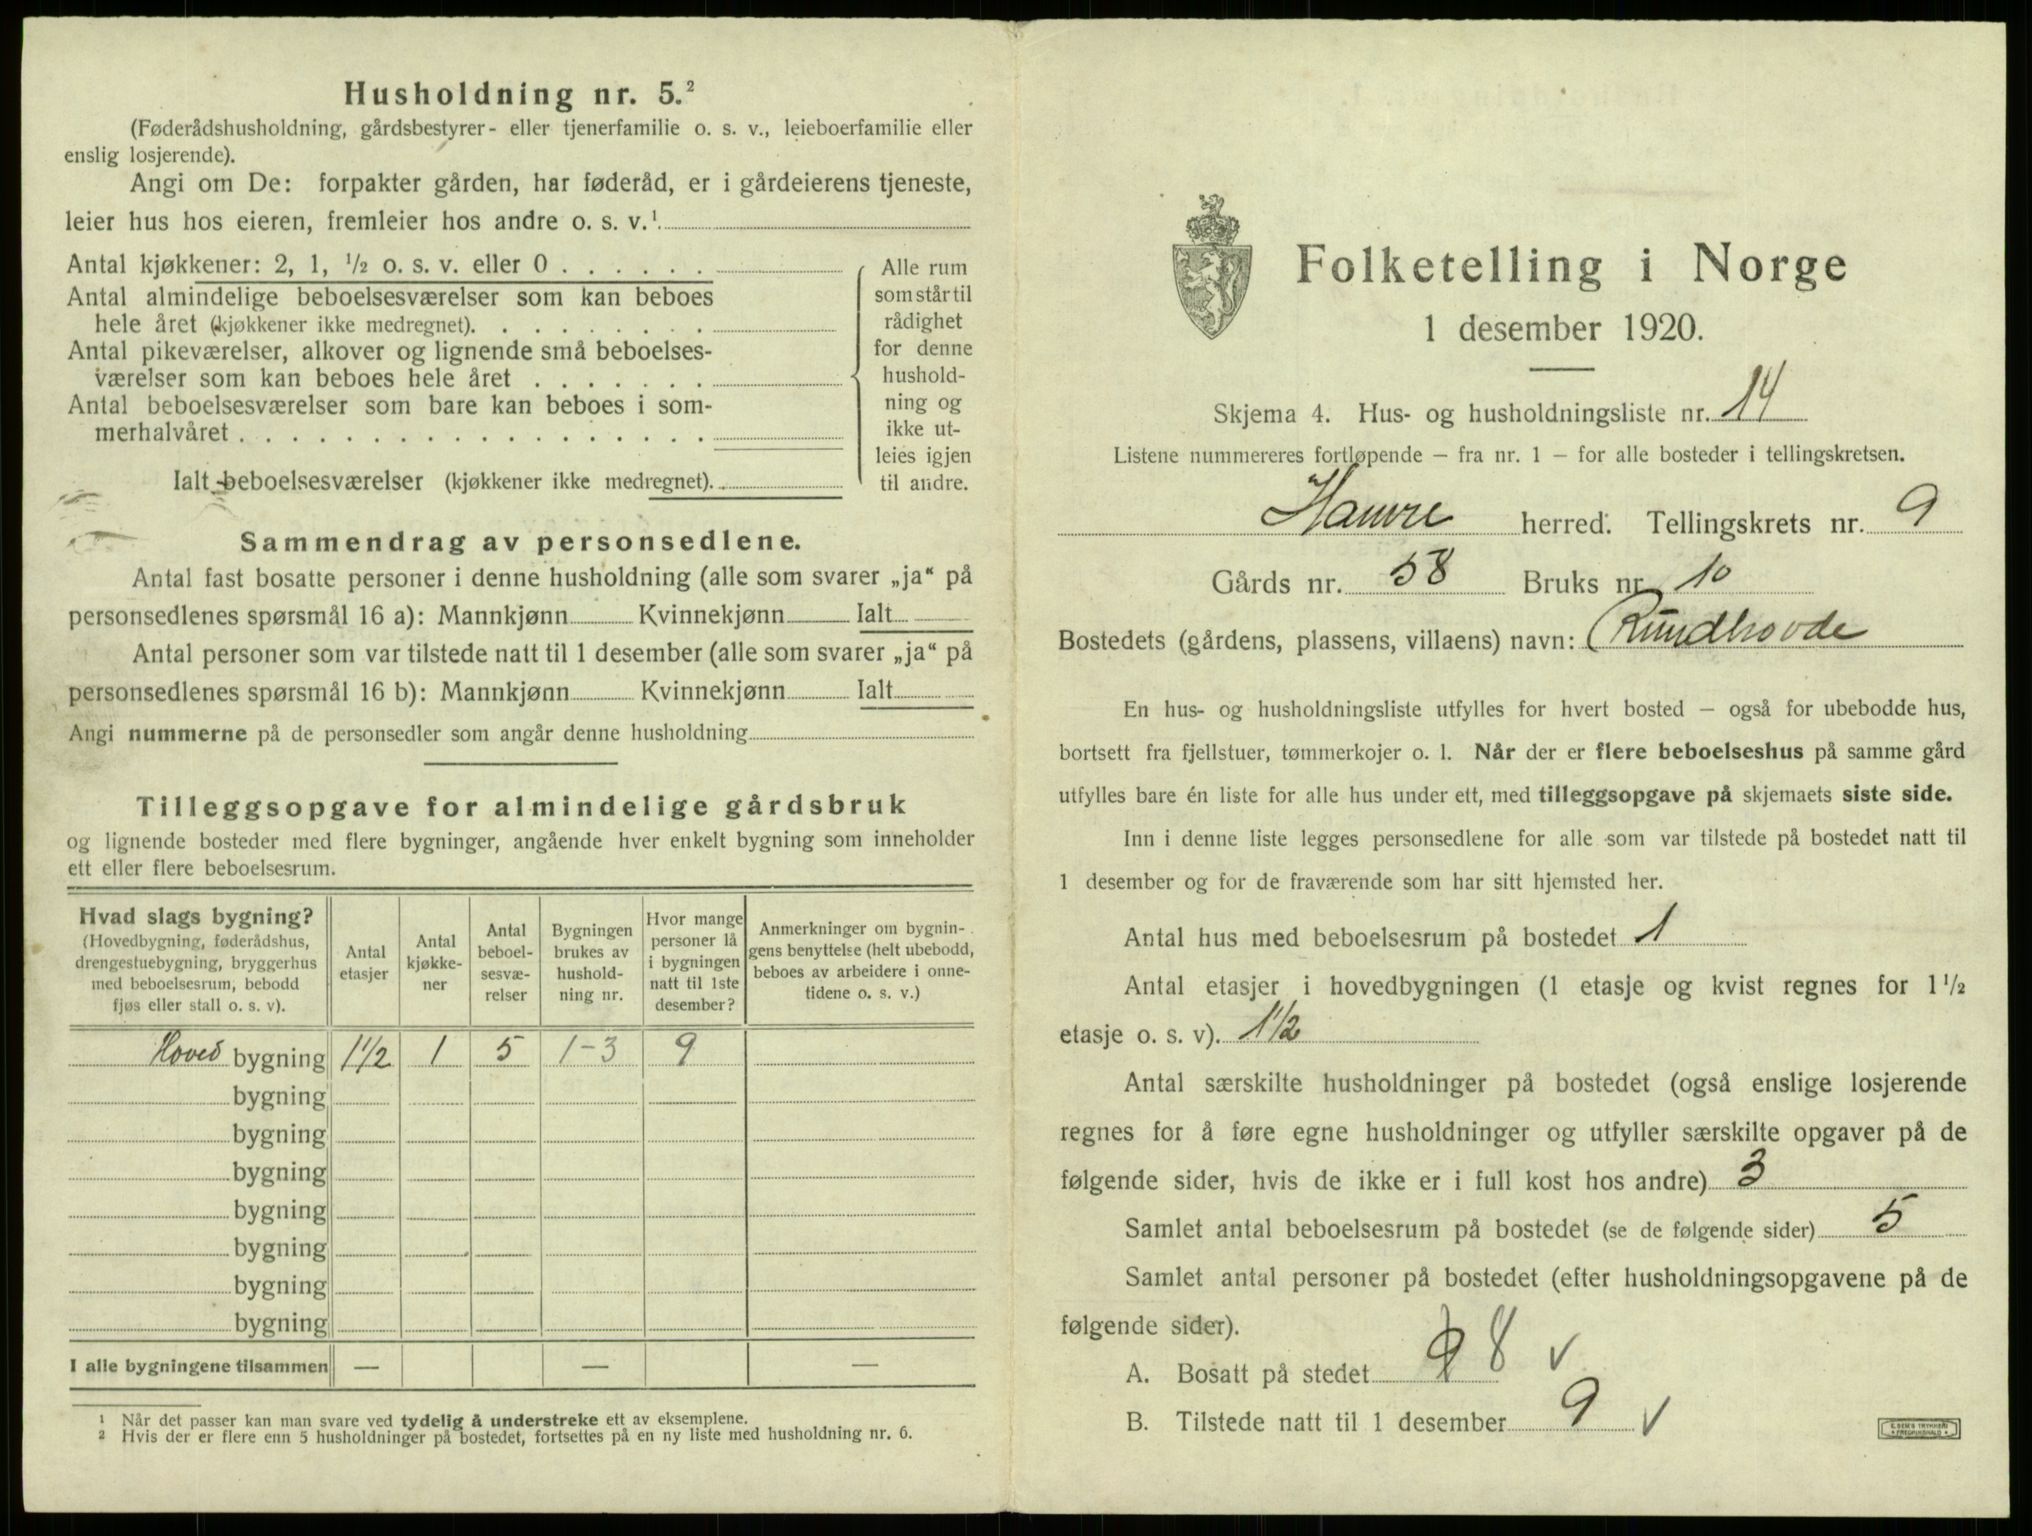 Husholdning nr. 5.²
(Føderådshusholdning, gårdsbestyrer- eller tjenerfamilie o. s. v., leieboerfamilie eller
enslig losjerende).
Angi om De: forpakter gården, har føderåd, er i gårdeierens tjeneste,
leier hus hos eieren, fremleier hos andre o. s. v.¹
Antal kjøkkener: 2, 1, ½ o. s. v. eller 0 . . . . . .
Antal almindelige beboelsesværelser som kan beboes
hele året (kjøkkener ikke medregnet). . . . . . . . .
Antal pikeværelser, alkover og lignende små beboelses-
værelser som kan beboes hele året . . . . . . .
Antal beboelsesværelser som bare kan beboes i som-
merhalvåret . . . . . . . . . . . . . . . . . .
Ialt beboelsesværelser (kjøkkener ikke medregnet).
Alle rum
som står til
rådighet
for denne
hushold-
ning og
ikke ut-
leies igjen
til andre.
Sammendrag av personsedlene.
Antal fast bosatte personer i denne husholdning (alle som svarer „ja“ på
personsedlenes spørsmål 16 a): Mannkjønn Kvinnekjønn Ialt
Antal personer som var tilstede natt til 1 desember (alle som svarer „ja“ på
personsedlenes spørsmål 16 b): Mannkjønn Kvinnekjønn Ialt
Angi nummerne på de personsedler som angår denne husholdning
Tilleggsopgave for almindelige gårdsbruk
og lignende bosteder med flere bygninger, angående hver enkelt bygning som inneholder
ett eller flere beboelsesrum.
Hvad slags bygning?
(Hovedbygning, føderådshus,
drengestuebygning, bryggerhus
med beboelsesrum, bebodd
fjøs eller stall o. s. v).
Antal
etasjer
Antal
kjøkke-
ner
Antal
beboel-
sesvæ-
relser
Bygningen
brukes av
hushold-
ning nr.
Hvor mange
personer lå
i bygningen
natt til 1ste
desember?
Anmerkninger om bygnin-
gens benyttelse (helt ubebodd,
beboes av arbeidere i onne-
tidene o. s. v.)
Hoved bygning 1½ 1 5 1-3 9
bygning
bygning
bygning
bygning
bygning
bygning
bygning
I alle bygningene tilsammen — — —
¹ Når det passer kan man svare ved tydelig å understreke ett av eksemplene.
² Hvis der er flere enn 5 husholdninger på bostedet, fortsettes på en ny liste med husholdning nr. 6.
Folketelling i Norge
1 desember 1920.
Skjema 4. Hus- og husholdningsliste nr. 14
Listene nummereres fortløpende – fra nr. 1 – for alle bosteder i tellingskretsen.
Hamre herred. Tellingskrets nr. 9
Gårds nr. 58 Bruks nr. 10
Bostedets (gårdens, plassens, villaens) navn: Rundhovde
En hus- og husholdningsliste utfylles for hvert bosted – også for ubebodde hus,
bortsett fra fjellstuer, tømmerkojer o. l. Når der er flere beboelseshus på samme gård
utfylles bare én liste for alle hus under ett, med tilleggsopgave på skjemaets siste side.
Inn i denne liste legges personsedlene for alle som var tilstede på bostedet natt til
1 desember og for de fraværende som har sitt hjemsted her.
Antal hus med beboelsesrum på bostedet 1
Antal etasjer i hovedbygningen (1 etasje og kvist regnes for 1 ½
etasje o. s. v). 1½
Antal særskilte husholdninger på bostedet (også enslige losjerende
regnes for å føre egne husholdninger og utfyller særskilte opgaver på de
følgende sider, hvis de ikke er i full kost hos andre) 3
Samlet antal beboelsesrum på bostedet (se de følgende sider) 5
Samlet antal personer på bostedet (efter husholdningsopgavene på de
følgende sider).
A. Bosatt på stedet 9 8 v
B. Tilstede natt til 1 desember 9 v
E. SEM'S TRYKKERI
FREDRIKSHALD